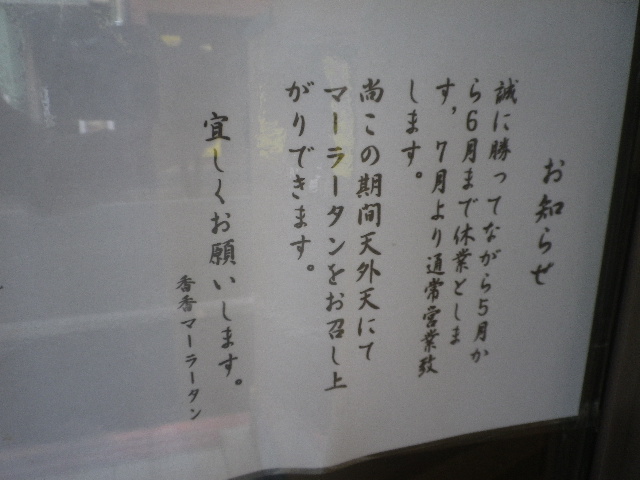 お知らせ
誠に勝ってながら5月か
ら6月まで休業としま
す,7月より通常営業致
します。
尚この期間天外天にて
マーラータンをお召し上
がりできます。
宜しくお願いします。
香香マーラータン